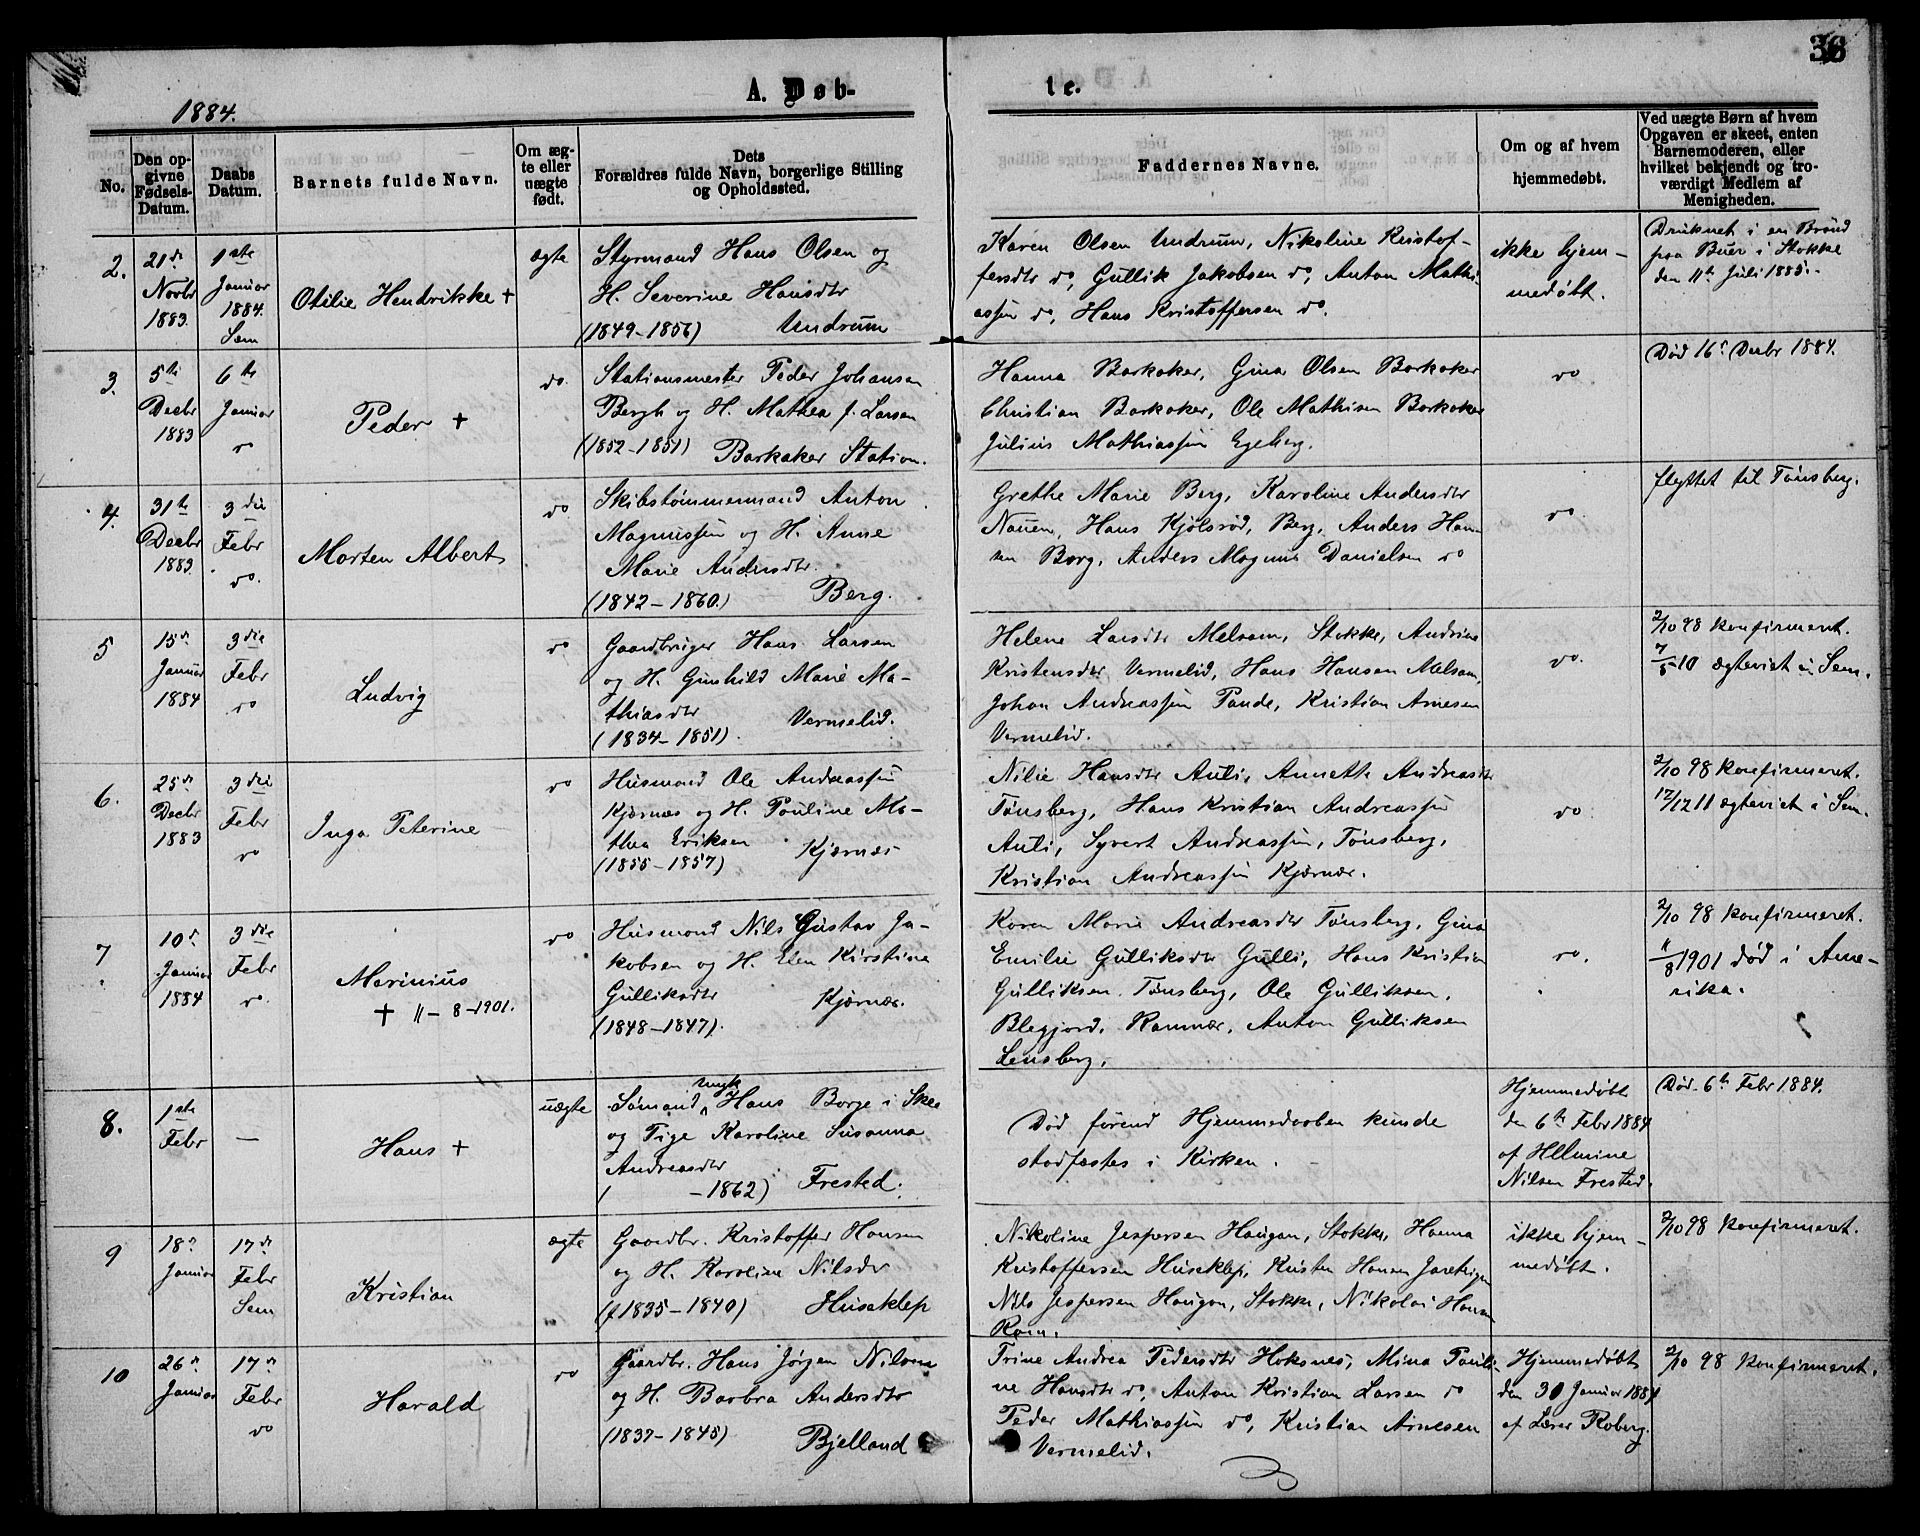 36
A. Døb-
te.
1884.
No.
Den op-
givne
Fødsels-
Datum.
Daabs
Datum.
Barnets fulde Navn.
Om æg-
te eller
uægte
født.
Dets
Forældres fulde Navn, borgerlige Stilling
og Opholdssted.
Faddernes Navne.
Om og af hvem
hjemmedøbt.
Ved uægte Børn af hvem
Opgaven er skeet, enten
Barnemoderen, eller
hvilket bekjendt og tro-
værdigt Medlem af
Menigheden.
2.
21de
Novbr
1883.
1ste
Januar
1884.
Sem
Otilie Hendrikke +
ægte
Styrmand Hans Olsen og
H. Severine Hansdtr
(1849-1856) Undrum
Karen Olsen Undrum, Nikoline Kristof-
fersdtr do, Gullik Jakobsen do, Anton Mathi-
assen do, Hans Kristoffersen do.
ikke hjem-
medøbt.
Druknet i en Brønd
paa Buer i Stokke
den 11te Juli 1885.
3.
5te
Decbr
1883
6te
Januar
do
Peder +
do.
Stationsmester Peder Johansen
Bergh og H. Mathea f. Larsen
(1852-1851) Barkaker Station.
Hanna Barkaker, Gina Olsen Barkaker
Christian Barkaker, Ole Mathisen Barkaker
Julius Mathiassen Egeberg.
do
Død 16de Decbr 1884.
4.
31te
Decbr
1883.
3die
Febr
do.
Morten Albert
do
Skibstømmermand Anton
Magnussen og H. Anne
Marie Andersdtr.
(1842-1860.) Berg.
Grethe Marie Berg, Karoline Andersdtr
Nauen, Hans Kjølsrød, Berg, Anders Han-
sen Berg, Anders Magnus Danielsen do
do.
flyttet til Tønsberg.
5
15de
Januar
1884
3die
Febr
do
Ludvig
do
Gaardbruger Hans Larsen
og H. Gunhild Marie Ma-
thiasdtr Vermelid.
(1834-1851).
Helene Larsdtr Melsom, Stokke, Andrine
Kristensdtr Vermelid, Hans Hansen Melsom,
Johan Andreassen Tande, Kristian Arnesen
Vermelid.
do.
2/10 98 konfirmeret.
7/5-10 ægteviet i Sem.
6.
25de
Decbr
1883
3die
Febr
do
Inga Peterine
do
Husmand Ole Andreassen
Kjærnæs og H. Pouline Ma-
thea Eriksen Kjærnæs
(1855-1857)
Nilie Hansdtr Auli, Annette Andreasdtr
Tønsberg, Hans Kristian Andreassen
Auli, Syvert Andreassen, Tønsberg,
Kristian Andreassen Kjærnæs.
do
2/10 98 konfirmeret.
17/12 11 ægteviet i Sem.
7
10de
Januar
1884
3die
Febr
do.
Marinius
+ 11-8-1901.
do
Husmand Nils Gustav Ja-
kobsen og H. Elen Kirstine
Gulliksdtr Kjærnæs.
(1848-1847).
Karen Marie Andreasdtr Tønsberg, Gina
Emilie Gulliksdtr Gulli, Hans Kristian
Gulliksen Tønsberg, Ole Gulliksen,
Blegjord, Ramnæs, Anton Gulliksen
Lensberg.
do.
2/10 98 konfirmeret.
11/8 1901 død i Ame-
rika.
8.
1ste
Febr
—
Hans +
uægte
Sømand, ungk Hans Borge i Skee
og Pige Karoline Susanna
Andreasdtr
( -1862) Frested.
Død førend Hjemmedaaben kunde
stadfæstes i Kirken.
Hjemmedøbt
den 6te Febr 1884
af Helmine
Nilsen Frested.
Død 6te Febr 1884.
9
18de
Januar
17de
Febr
Sem
Kristian
ægte
Gaardbr. Kristoffer Hansen
og H. Karoline Nilsdtr
(1835-1840) Huseklep
Nikoline Jespersen Haugan, Stokke, Hanna
Kristoffersen Huseklep, Kristen Hansen
Nils Jespersen Haugan, Stokke, Nikolai Hansen
Ram.
ikke hjem-
medøbt.
2/10 98 konfirmeret.
10
26de
Januar
17de
Febr
do
Harald
do
Gaardbr. Hans Jørgen Nilsen
og H. Barbra Andersdtr
(1837-1845) Bjelland
Trine Andrea Pedersdtr Hoksnes, Mina Pauli-
ne Hansdtr do, Anton Kristian Larsen do
Peder Mathiassen do, Kristian Arnesen
Vermelid.
Hjemmedøbt
den 30 Januar 1884
af Lærer Roberg.
2/10 98 konfirmeret.